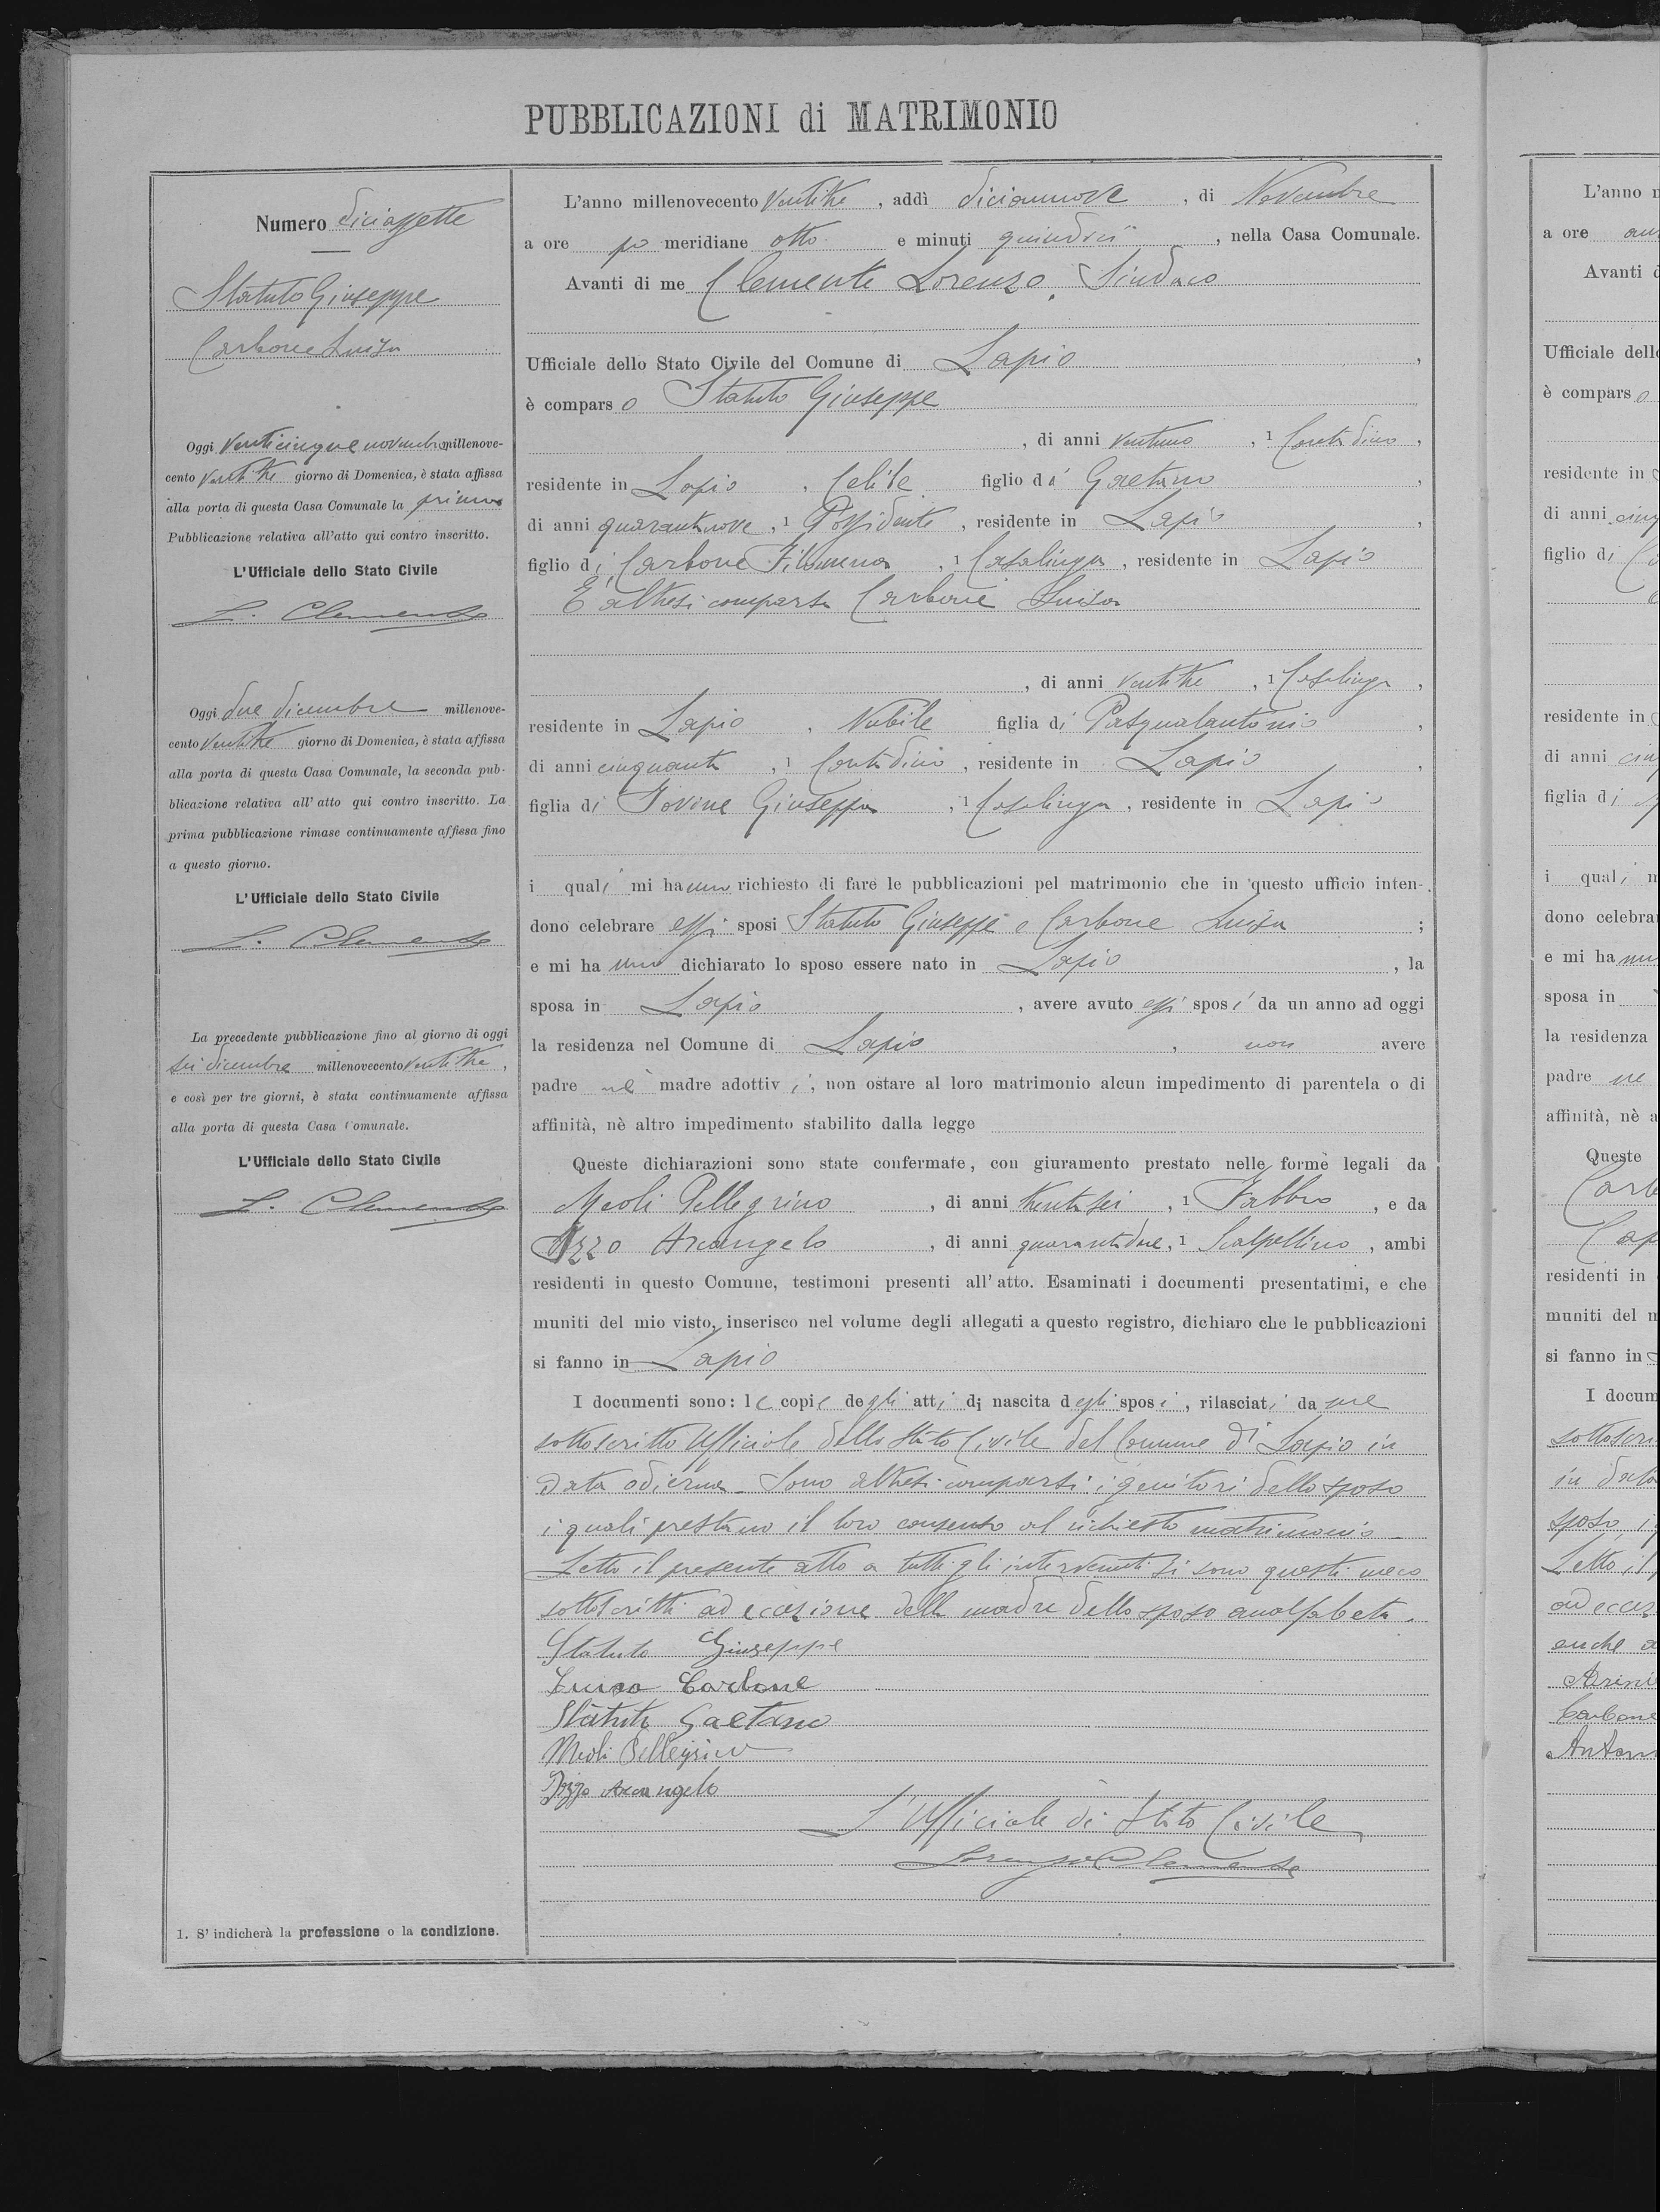 PUBBLICAZIONI di MATRIMONIO
Numero diciassette
Statuto Giuseppe
Carbone Luisa
Oggi Venticinque novembre millenove-
cento Ventitre giorno di Domenica, è stata affissa
alla porta di questa Casa Comunale la prima
Pubblicazione relativa all'atto qui contro inscritto.
L'Ufficiale dello Stato Civile
L. Clemente
Oggi due dicembre millenove-
cento Ventitre giorno di Domenica, è stata affissa
alla porta di questa Casa Comunale, la seconda pub-
blicazione relativa all' atto qui contro inscritto. La
prima pubblicazione rimase continuamente affissa fino
a questo giorno.
L'Ufficiale dello Stato Civile
L. Clemente
La precedente pubblicazione fino al giorno di oggi
sei dicembre millenovecento Ventitre,
e così per tre giorni, è stata continuamente affissa
alla porta di questa Casa Comunale.
L'Ufficiale dello Stato Civile
L. Clemente
1. S' indicherà la professione o la condizione.
L'anno millenovecento Ventitre, addì diciannove, di Novembre
a ore po meridiane otto e minuti quindici, nella Casa Comunale.
Avanti di me Clemente Lorenzo, Sindaco
Ufficiale dello Stato Civile del Comune di Lapio,
è comparso Statuto Giuseppe
, di anni ventuno, 1 Contadino,
residente in Lapio, Celibe figlio di Gaetano,
di anni quarantanove, 1 Possidente, residente in Lapio,
figlio di Carbone Filomena, 1 Casalinga, residente in Lapio
E altresì comparsa Carbone Luisa
, di anni Ventitre, 1 Casalinga,
residente in Lapio, Nubile figlia di Pasqualantonio,
di anni cinquanta, 1 Contadino, residente in Lapio,
figlia di Iovine Giuseppa, 1 Casalinga, residente in Lapio
i quali mi hanno richiesto di fare le pubblicazioni pel matrimonio che in questo ufficio inten-
dono celebrare essi sposi Statuto Giuseppe e Carbone Luisa;
e mi hanno dichiarato lo sposo essere nato in Lapio, la
sposa in Lapio, avere avuto essi sposi da un anno ad oggi
la residenza nel Comune di Lapio, non avere
padre nè madre adottivi, non ostare al loro matrimonio alcun impedimento di parentela o di
affinità, nè altro impedimento stabilito dalla legge
Queste dichiarazioni sono state confermate, con giuramento prestato nelle forme legali da
Meoli Pellegrino, di anni trentasei, 1 Fabbro, e da
Arcangelo, di anni quarantadue, 1 Scalpellino, ambi
residenti in questo Comune, testimoni presenti all' atto. Esaminati i documenti presentatimi, e che
muniti del mio visto, inserisco nel volume degli allegati a questo registro, dichiaro che le pubblicazioni
si fanno in Lapio
I documenti sono: le copie degli atti di nascita degli sposi, rilasciati da me
sottoscritto Ufficiale dello Stato Civile del Comune di Lapio in
data odierna. Sono altresì comparsi i genitori dello sposo
i quali prestano il loro consenso al richiesto matrimonio.
Letto il presente atto a tutti gli intervenuti si sono questi meco
sottoscritti ad eccezione della madre dello sposo analfabeta.
Statuto Giuseppe
Luisa Carbone
Statuto Gaetano
Meoli Pellegrino
Arcangelo
L'Ufficiale di Stato Civile
Lorenzo Clemente
L'anno
a ore
Avanti
Ufficiale dell
è comparso
residente in
di anni
figlio di
residente in
di anni
figlia di
i quali
dono celebra
e mi ha
sposa in
la residenza
padre ne
affinità, nè
Queste
residenti in
muniti del
si fanno in
I docum
sottoscri
in data
sposo
Letto il
ad eccez
anche
Carbone